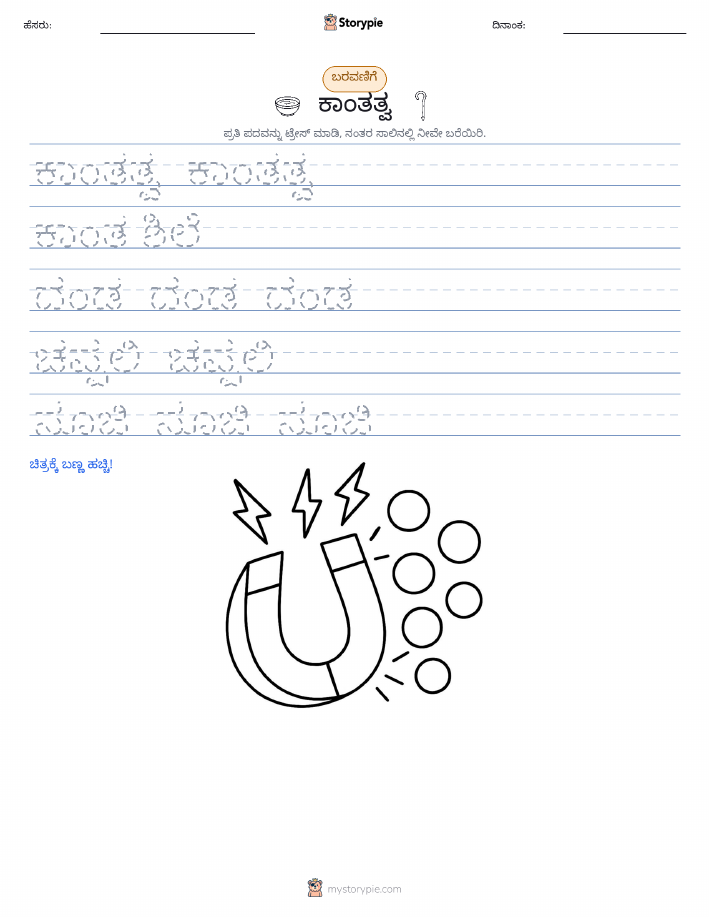 ಹೆಸರು:
Storypie
ದಿನಾಂಕ:
ಬರವಣಿಗೆ
ಕಾಂತತ್ವ
ಪ್ರತಿ ಪದವನ್ನು ಟ್ರೇಸ್ ಮಾಡಿ, ನಂತರ ಸಾಲಿನಲ್ಲಿ ನೀವೇ ಬರೆಯಿರಿ.
ಕಾಂತತ್ವ ಕಾಂತತ್ವ
ಕಾಂತ ಶಿಲೆ
ದಂಡ ದಂಡ ದಂಡ
ಚಪ್ಪಲಿ ಚಪ್ಪಲಿ
ಸೂಜಿ ಸೂಜಿ ಸೂಜಿ
ಚಿತ್ರಕ್ಕೆ ಬಣ್ಣ ಹಚ್ಚಿ!
mystorypie.com